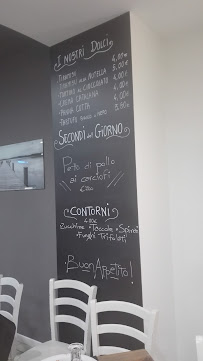 I NOSTRI DOLCI
TIRAMISÙ 4,00€
TIRAMISÙ ALLA NUTELLA 5,00€
CIOCCOLATO 4,00€
CREMA CATALANA 4,00€
PANNA COTTA 4,00€
TARTUFO BIANCO O NERO 3,50€
SECONDI del GIORNO
Petto di pollo
ai carciofi
CONTORNI
4,00€
Zucchine • Taccole • Spinaci
• Funghi Trifolati
BUON APPETITO!